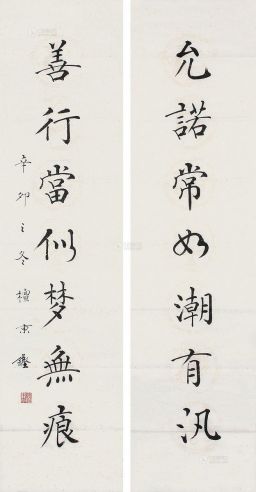 允諾常如潮有汛
善行當似梦無痕
辛卯之冬檀東鏗